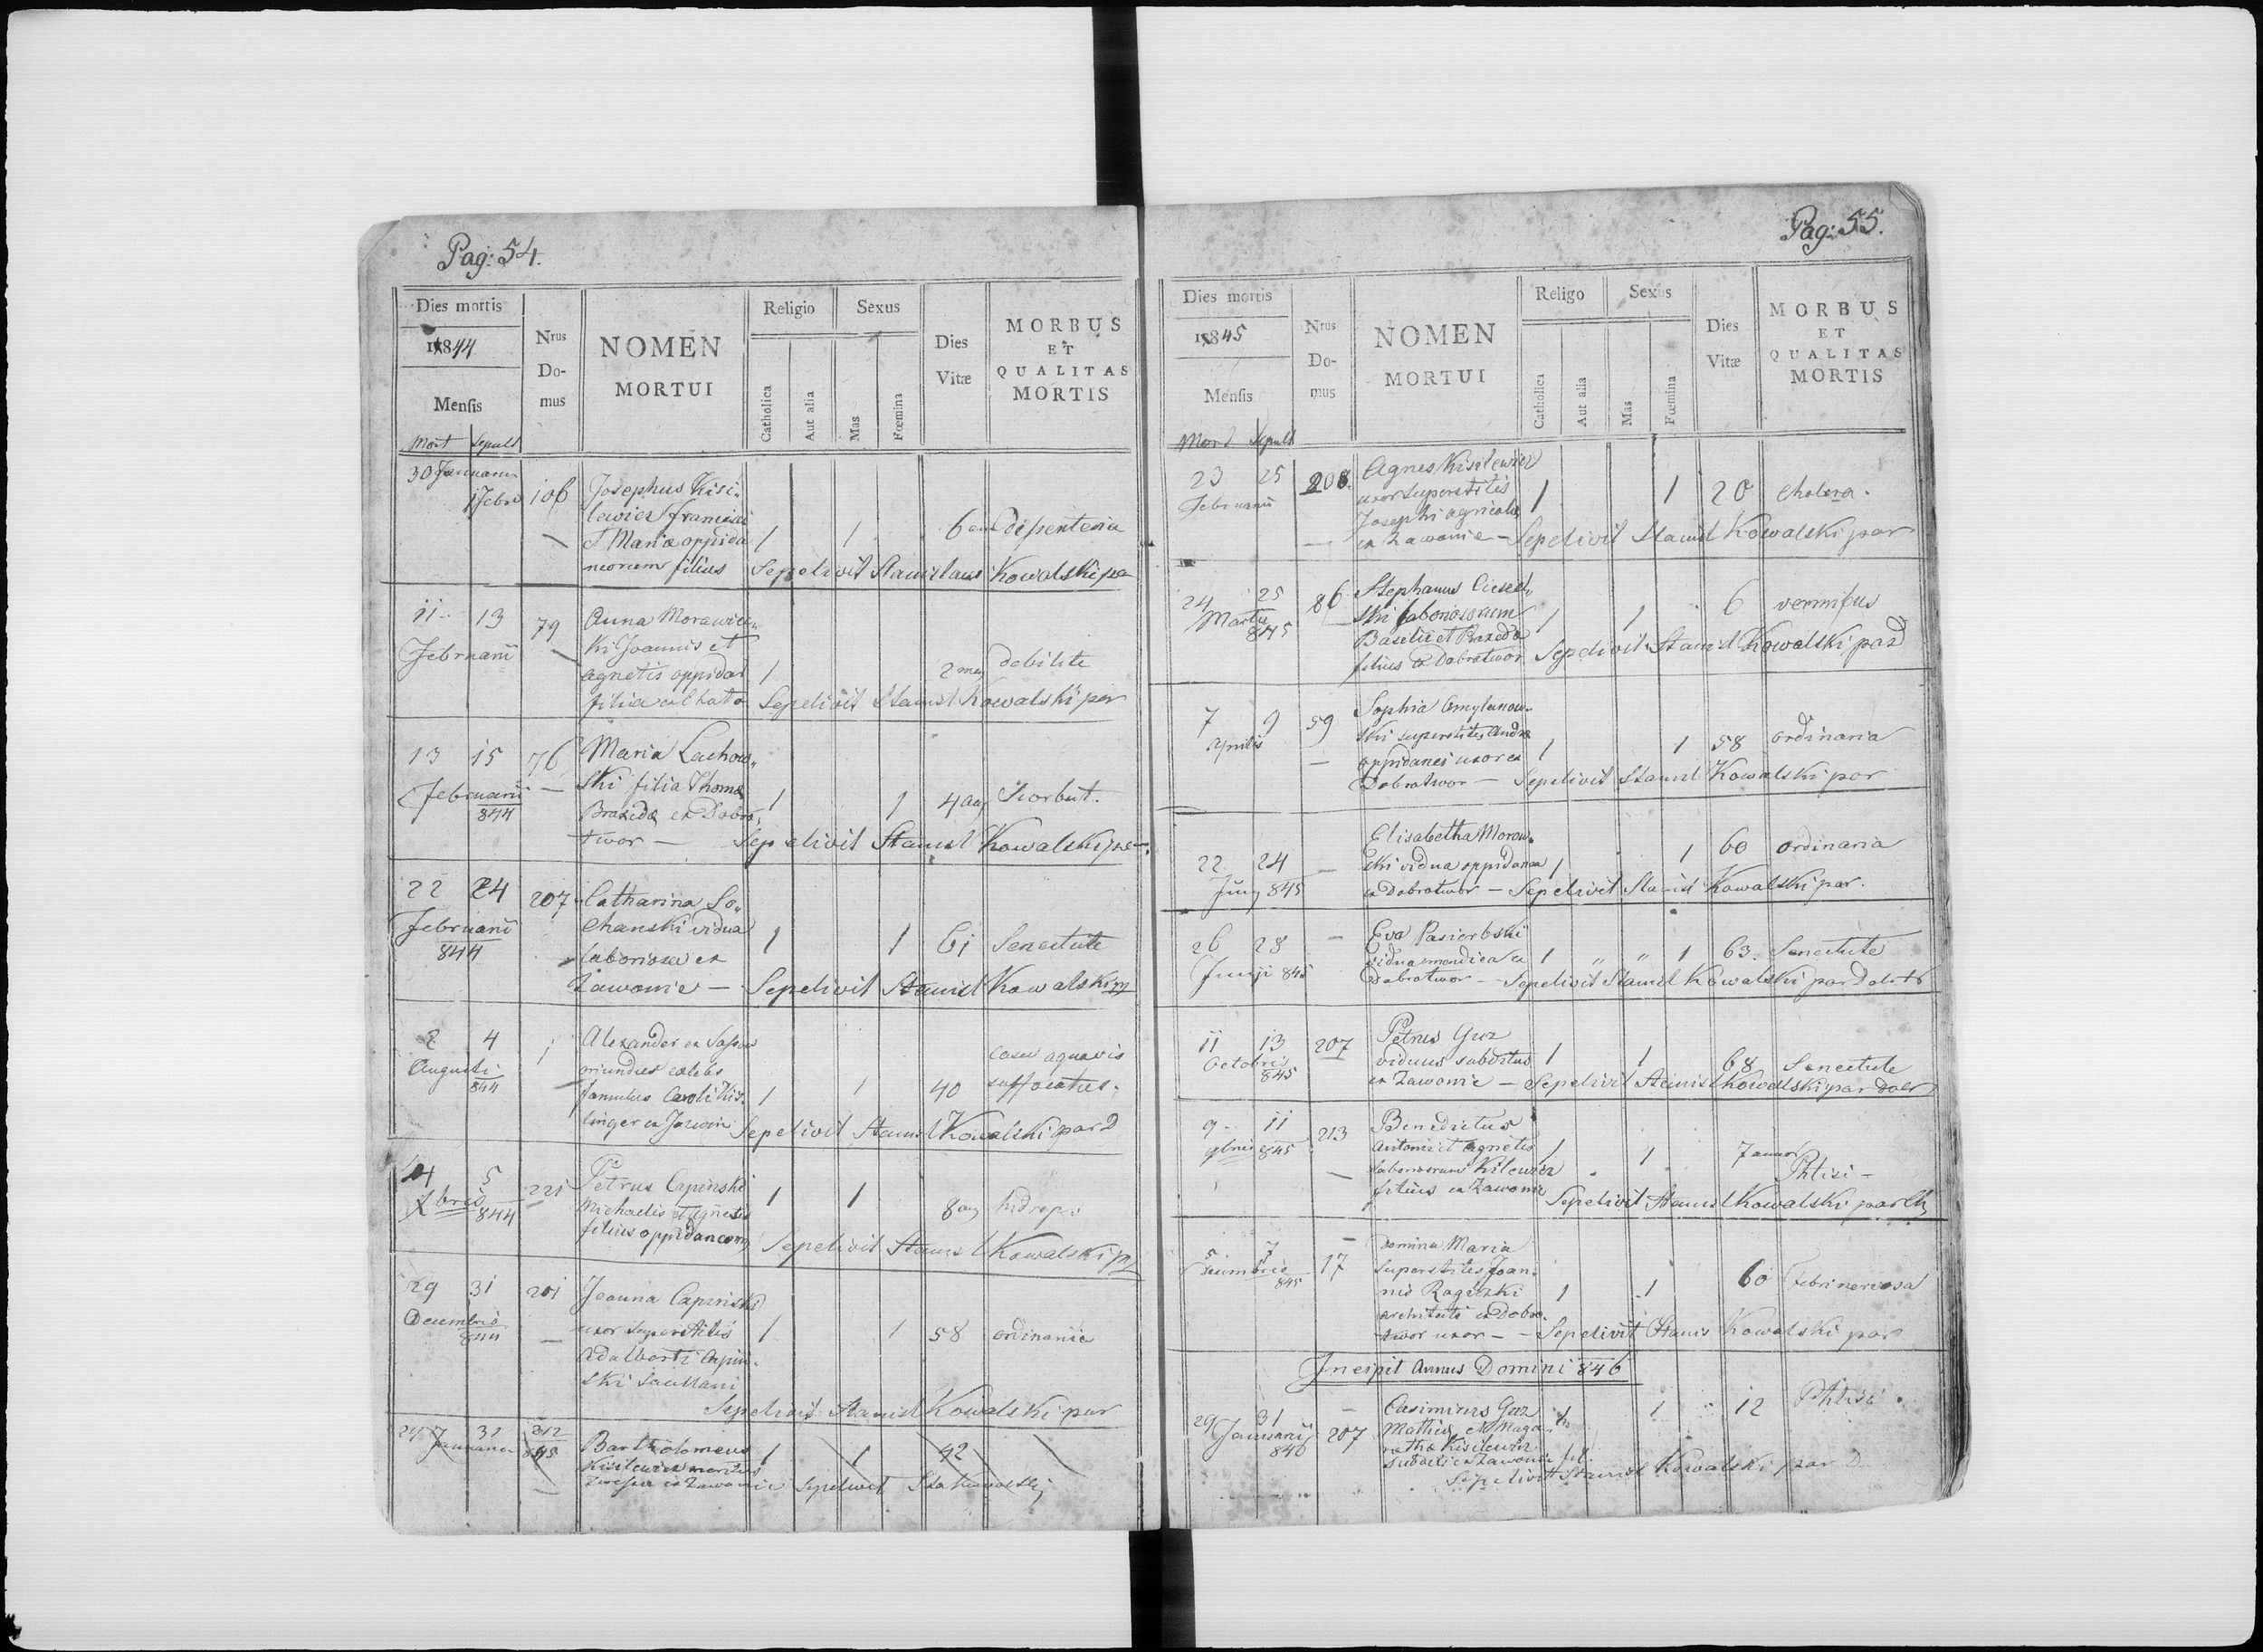 Pag: 54.
Dies mortis
1844
Mensis
Mort Sepult
Nrus
Do-
mus
NOMEN
MORTUI
Religio
Catholica
Aut alia
Sexus
Mas
Fœmina
Dies
Vitæ
MORBUS
ET
QUALITAS
MORTIS
30 Januarii
1 Febr 106 Josephus Kisi-
lewicz Francisci
et Mariæ oppida 1 1 6 an
neorum filius Sepelivit Stanislaus Kowalski
11 13 79 Anna Morawic-
Februarii ki Joannis et
Agnetis oppidan 1 2 men debilite
filia Sepelivit Stanisl Kowalski par
13 15 76 Maria Lachow-
Februarii ski filia Thomæ 1 1 4 an Scorbut.
844 Braxedæ ex Dobro-
twor — Sepelivit Stanisl Kowalski
22 24 207 Catharina So-
Februarii chanski vidua 1 1 61 Senectute
844 laboriosa ex
Zawonie — Sepelivit Stanisl Kowalski
2 4 1 Alexander ex
Augusti oriundus cælebs casu aquavis
844 famulus Caroli Kis- 1 1 40 suffocatus.
linger ex Sepelivit Stanisl Kowalski par D
4 5 221 Petrus Capinski
Xbris 844 Michaelis et Agnetis 1 1 8 an hidrops
filius oppidaneorum Sepelivit Stanisl Kowalski
29 31 201 Joanna Capinski
Decembris uxor superstitis 1 1 58 ordinaria
844 Adalberti Capin-
ski
Sepelivit Stanisl Kowalski par
31 212 Bartholomeus 1 1 42
Januarii 845 Kisilewicz
ex Zawonie Sepelivit Sta Kowalski
Pag: 55.
Dies mortis
1845
Mensis
Mort Sepult
Nrus
Do-
mus
NOMEN
MORTUI
Religo
Catholica
Aut alia
Sexus
Mas
Fœmina
Dies
Vitæ
MORBUS
ET
QUALITAS
MORTIS
23 25 208 Agnes Kisilewicz
Februarii uxor superstitis 1 1 20 cholera.
Josephi agricolæ
ex Zawonie — Sepelivit Stanisl Kowalski par
24 25 86 Stephanus
Martii ski laboriosorum 1 1 6 vermibus
845 Basilii et Braxeda
filius ex Dobrotwor Sepelivit Stanisl Kowalski par D
7 9 59 Sophia
Aprilis ski superstitis Andreæ
oppidanei uxor ex 1 1 58 ordinaria
Dobrotwor — Sepelivit Stanisl Kowalski par
Elisabetha Moraw-
22 24 — ski vidua oppidanea 1 1 60 ordinaria
Junj 845 ex Dobrotwor — Sepelivit Stanisl Kowalski par.
26 28 — Eva Pasierbski
Junji 845 vidua mendica ex 1 „ „ 1 63. Senectute
Dobrotwor — Sepelivit Stanisl Kowalski par
11 13 207 Petrus Guz
Octobris viduus subditus 1 1 68 Senectute
845 ex Zawonie — Sepelivit Stanisl Kowalski par
9 11 213 Benedictus
9bris 845 Antonii et Agnetis 1 1 7 annor
laboriosorum Kilewicz Phtisi —
filius ex Zawonie Sepelivit Stanisl Kowalski par
5 7 17 Domina Maria
Decembris superstitis Joan-
845 nis 1 1 60 febri nervosa
architecti ex Dobro-
twor uxor — Sepelivit Stanis Kowalski par
Incipit Annus Domini 846
29 31 207 Casimirus Guz 1 1 12 Phtisi
Januarii Mathiæ et
846 Kisilewicz
subditi ex Zawonie fil.
Sepelivit Stanisl Kowalski par D